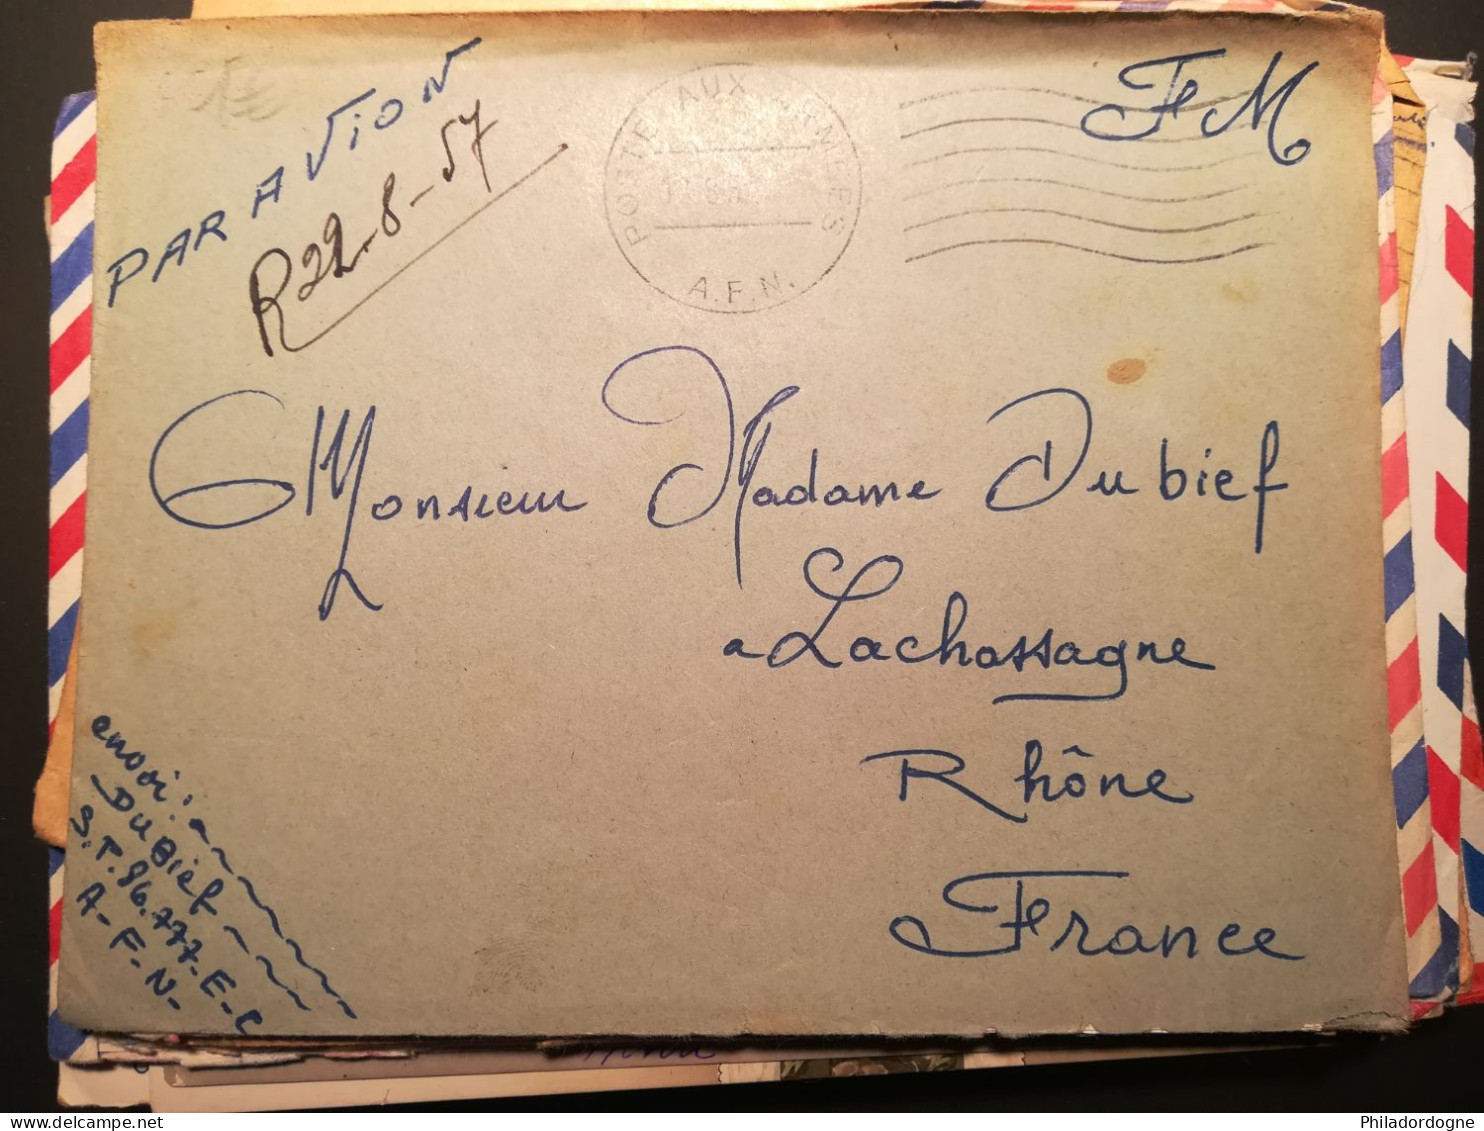 PAR AVION
R 22-8-57
POSTE AUX ARMÉES
A.F.N.
FM
Monsieur Madame Dubief
a Lachassagne
Rhône
France
envoi:
DUBIEF
S.P. 86.777-E-C
A-F-N-
Philadordogne